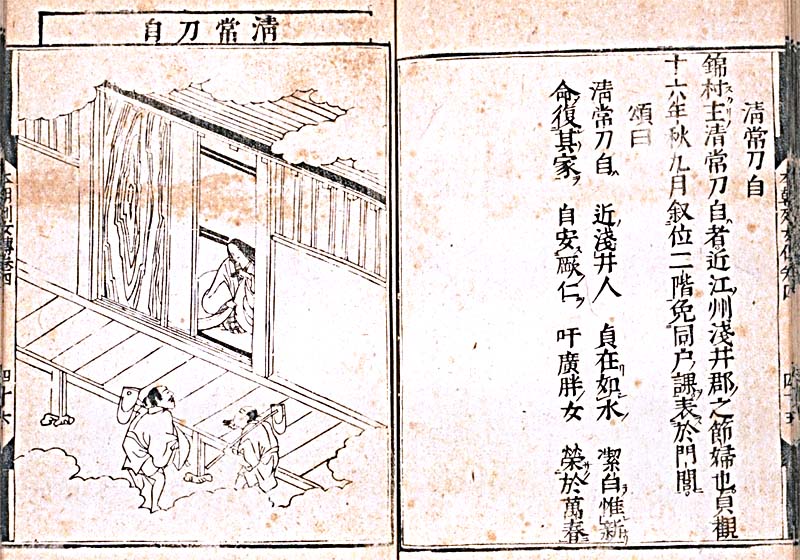 清常刀自
錦村主清常刀自者近江州淺井郡之節婦也貞觀
十六年秋九月叙位二階免同户課表於門閭
頌曰
清常刀自　近淺井人　貞在如水　潔白惟新
命復其家　自安厥仁　吁廣胖女　榮於萬春
清常刀自
本朝列女傳卷四
四十六